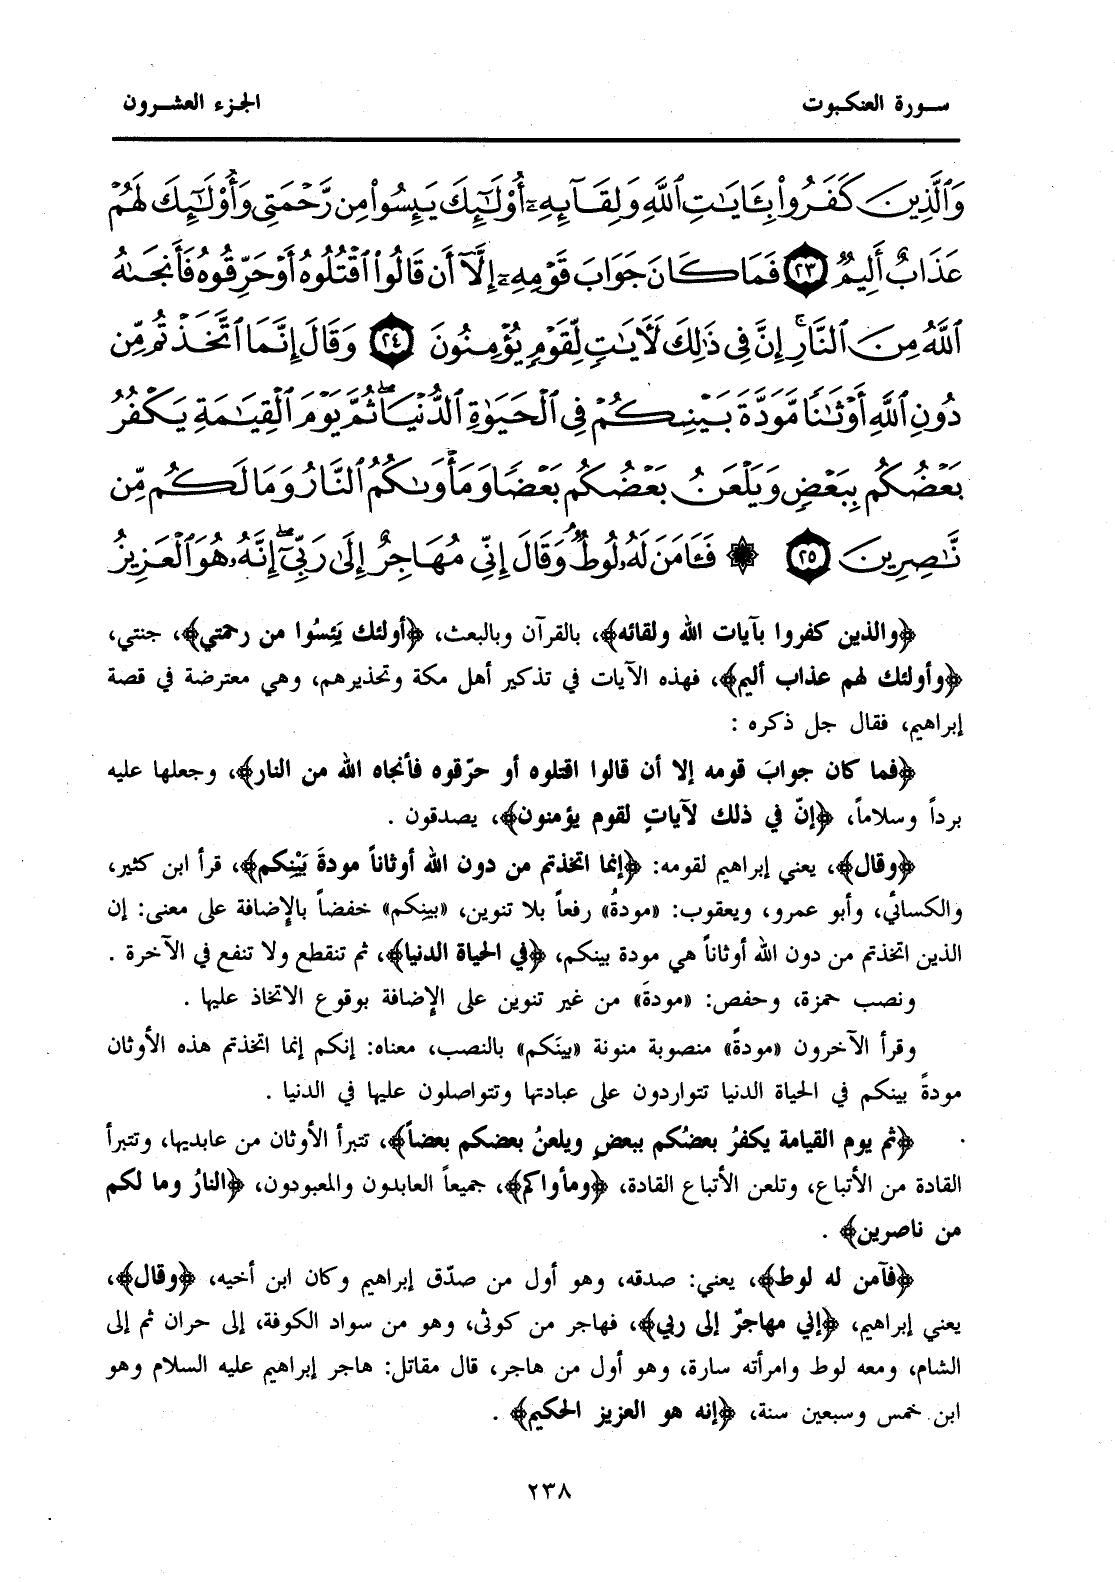 سورة العنكبوت
الجزء العشرون
وَٱلَّذِينَ كَفَرُوا۟ بِـَٔايَـٰتِ ٱللَّهِ وَلِقَآئِهِۦٓ أُو۟لَـٰٓئِكَ يَئِسُوا۟ مِن رَّحْمَتِى وَأُو۟لَـٰٓئِكَ لَهُمْ
عَذَابٌ أَلِيمٌ ٢٣ فَمَا كَانَ جَوَابَ قَوْمِهِۦٓ إِلَّآ أَن قَالُوا۟ ٱقْتُلُوهُ أَوْ حَرِّقُوهُ فَأَنجَىٰهُ
ٱللَّهُ مِنَ ٱلنَّارِ ۚ إِنَّ فِى ذَٰلِكَ لَـَٔايَـٰتٍ لِّقَوْمٍ يُؤْمِنُونَ ٢٤ وَقَالَ إِنَّمَا ٱتَّخَذْتُم مِّن
دُونِ ٱللَّهِ أَوْثَـٰنًا مَّوَدَّةَ بَيْنِكُمْ فِى ٱلْحَيَوٰةِ ٱلدُّنْيَا ۖ ثُمَّ يَوْمَ ٱلْقِيَـٰمَةِ يَكْفُرُ
بَعْضُكُم بِبَعْضٍ وَيَلْعَنُ بَعْضُكُم بَعْضًا وَمَأْوَىٰكُمُ ٱلنَّارُ وَمَا لَكُم مِّن
نَّـٰصِرِينَ ٢٥ ۞ فَـَٔامَنَ لَهُۥ لُوطٌ ۘ وَقَالَ إِنِّى مُهَاجِرٌ إِلَىٰ رَبِّىٓ ۖ إِنَّهُۥ هُوَ ٱلْعَزِيزُ
﴿والذين كفروا بآيات الله ولقائه﴾، بالقرآن وبالبعث، ﴿أولئك يَئِسُوا من رحمتي﴾، جنتي،
﴿وأولئك لهم عذاب أليم﴾، فهذه الآيات في تذكير أهل مكة وتحذيرهم، وهي معترضة في قصة
إبراهيم، فقال جل ذكره :
﴿فما كان جوابَ قومه إلا أن قالوا اقتلوه أو حرّقوه فأنجاه الله من النار﴾، وجعلها عليه
برداً وسلاماً، ﴿إنّ في ذلك لآياتٍ لقوم يؤمنون﴾، يصدقون .
﴿وقال﴾، يعني إبراهيم لقومه: ﴿إنما اتخذتم من دون الله أوثاناً مودةَ بَيْنِكم﴾، قرأ ابن كثير،
والكسائي، وأبو عمرو، ويعقوب: «مودةُ» رفعاً بلا تنوين، «بينِكم» خفضاً بالإضافة على معنى: إن
الذين اتخذتم من دون الله أوثاناً هي مودة بينكم، ﴿في الحياة الدنيا﴾، ثم تنقطع ولا تنفع في الآخرة .
ونصب حمزة، وحفص: «مودةَ» من غير تنوين على الإضافة بوقوع الاتخاذ عليها .
وقرأ الآخرون «مودةً» منصوبة منونة «بينَكم» بالنصب، معناه: إنكم إنما اتخذتم هذه الأوثان
مودةً بينكم في الحياة الدنيا تتواردون على عبادتها وتتواصلون عليها في الدنيا .
﴿ثم يوم القيامة يكفرُ بعضُكم ببعضٍ ويلعنُ بعضكم بعضاً﴾، تتبرأ الأوثان من عابديها، وتتبرأ
القادة من الأتباع، وتلعن الأتباع القادة، ﴿ومأواكم﴾، جميعاً العابدون والمعبودون، ﴿النارُ وما لكم
من ناصرين﴾ .
﴿فآمن له لوط﴾، يعني: صدقه، وهو أول من صدّق إبراهيم وكان ابن أخيه، ﴿وقال﴾،
يعني إبراهيم، ﴿إني مهاجرٌ إلى ربي﴾، فهاجر من كوثى، وهو من سواد الكوفة، إلى حران ثم إلى
الشام، ومعه لوط وامرأته سارة، وهو أول من هاجر، قال مقاتل: هاجر إبراهيم عليه السلام وهو
ابن خمس وسبعين سنة، ﴿إنه هو العزيز الحكيم﴾ .
٢٣٨